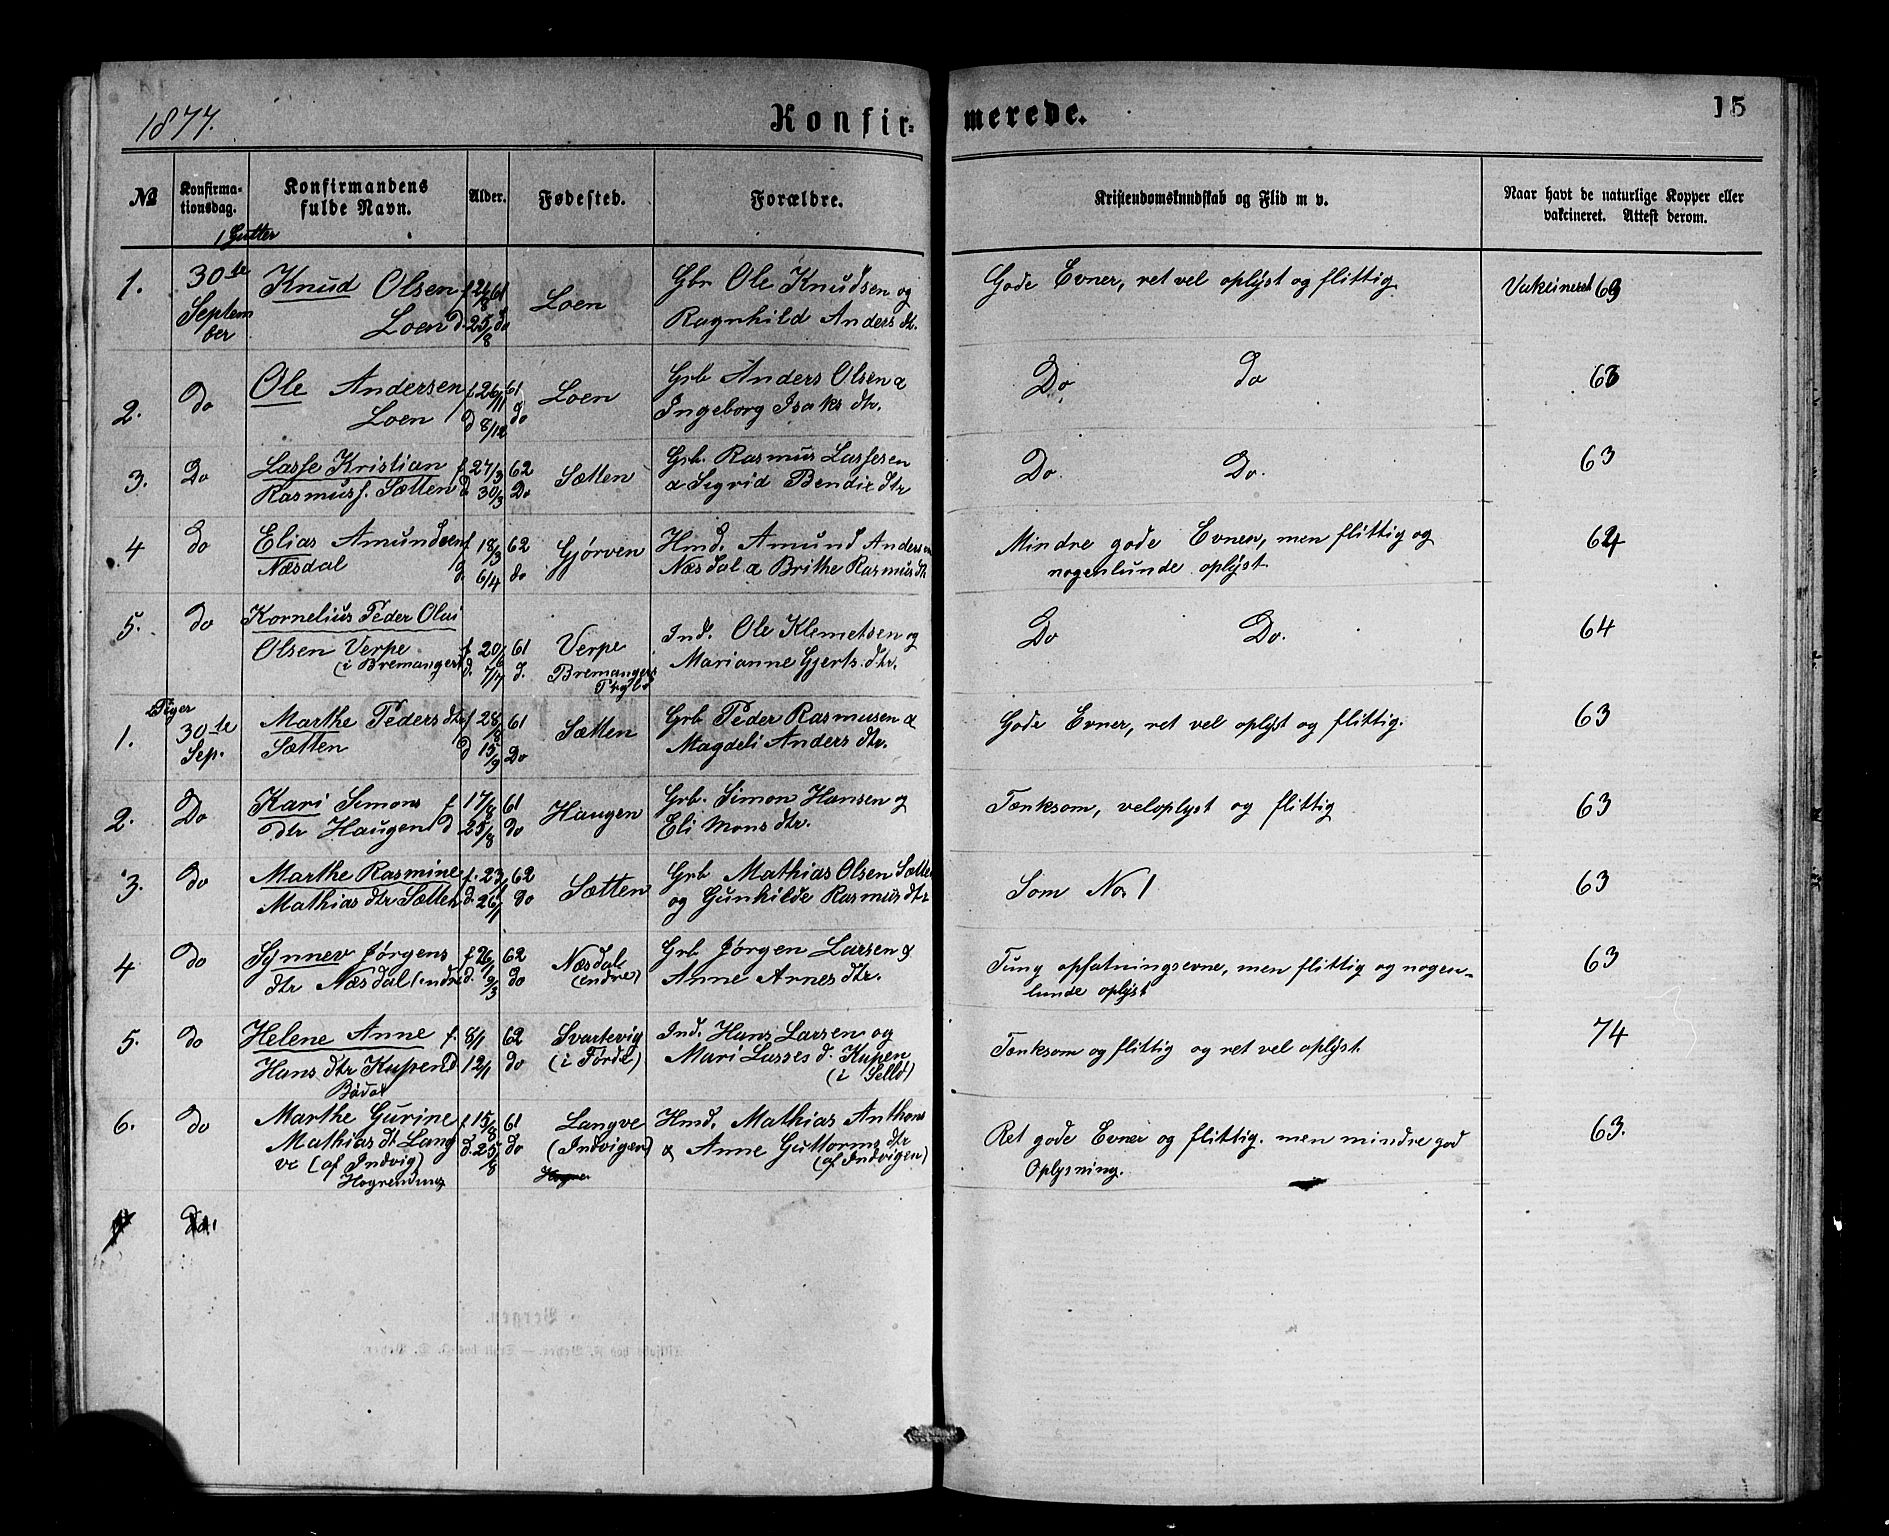 1877.
Konfir-
merede.
15
No
Konfirma-
tionsdag.
Konfirmandens
fulde Navn.
Alder.
Fødested.
Forældre.
Kristendomskundskab og Flid m v.
Naar havt de naturlige Kopper eller
vakcineret. Attest derom.
Gutter
1. 30te Knud Olsen f 61 Loen Gbr Ole Knudsen og Gode Evner, ret vel oplyst og flittig. Vakcineret 63
Septem Loen d. 25/8 do Ragnhild Anders dtr.
ber
2. do Ole Andersen f 26/11 61 Loen Grb Anders Olsen & Do do 63
Loen d 8/12 do Ingeborg Isaks dtr.
3. Do Lasse Kristian f 27/3 62 Sætten Grb. Rasmus Lassesen Do. Do. 63
Rasmuss. Sætten d 30/3 Do & Sigrid Bendix dtr
4 do Elias Amundsen f 18/3 62 Gjørven Hmd. Amund Andersen Mindre gode Evner, men flittig og 64
Næsdal d. 6/4 do Næsdal & Brithe Rasmus dtr nogenlunde oplyst
5. do Kornelius Peder Olai Do Do. 64
Olsen Verpe f 20/6 61 Verpe Ind. Ole Klemetsen og
(i Bremanger) d. 7/7 d. Bremangers Marianne Gjerts dtr.
Piger
1. 30te Marthe Peders dtr f 28/8 61 Sætten Grb Peder Rasmusen & Gode Evner, ret vel oplyst og flittig. 63
Sep. Sætten d 15/9 Do Magdeli Anders dtr.
2. Do Kari Simons f 17/8 61 Haugen Grb. Simon Hansen og Tænksom, veloplyst og flittig 63
dtr Haugen d 25/8 do Eli Mons dtr.
3. do Marthe Rasmine f. 23/1 62 Sætten Grb Mathias Olsen Sætten Som No 1 63
Mathias dtr Sætten d. 26/1 do og Gunhilde Rasmus dtr
4 do Synnev Jørgens f 62 Næsdal Grb Jørgen Larsen & Tung opfatningsevne, men flittig og nogen- 63
dtr Næsdal indre d. 9/3 do (indre) Anne Arnes dtr. lunde oplyst
5. do Helene Anne f. 8/1 62 Svartevig Ind. Hans Larsen og Tænksom og flittig og ret vel oplyst. 74
Hans dtr Kupen d 12/1 do (i Førde) Mari Lasses d. Kupen
Bødal (i Selld)
6. do Marthe Gurine f 15/8 61 Langve Hmd. Mathias Anthons Ret gode Evner og flittig. men mindre god 63.
Mathias dt Lang d. 25/8 do (Indvigen) & Anne Guttorms dtr Oplysning.
ve (af Indvig) (af Indvigen)